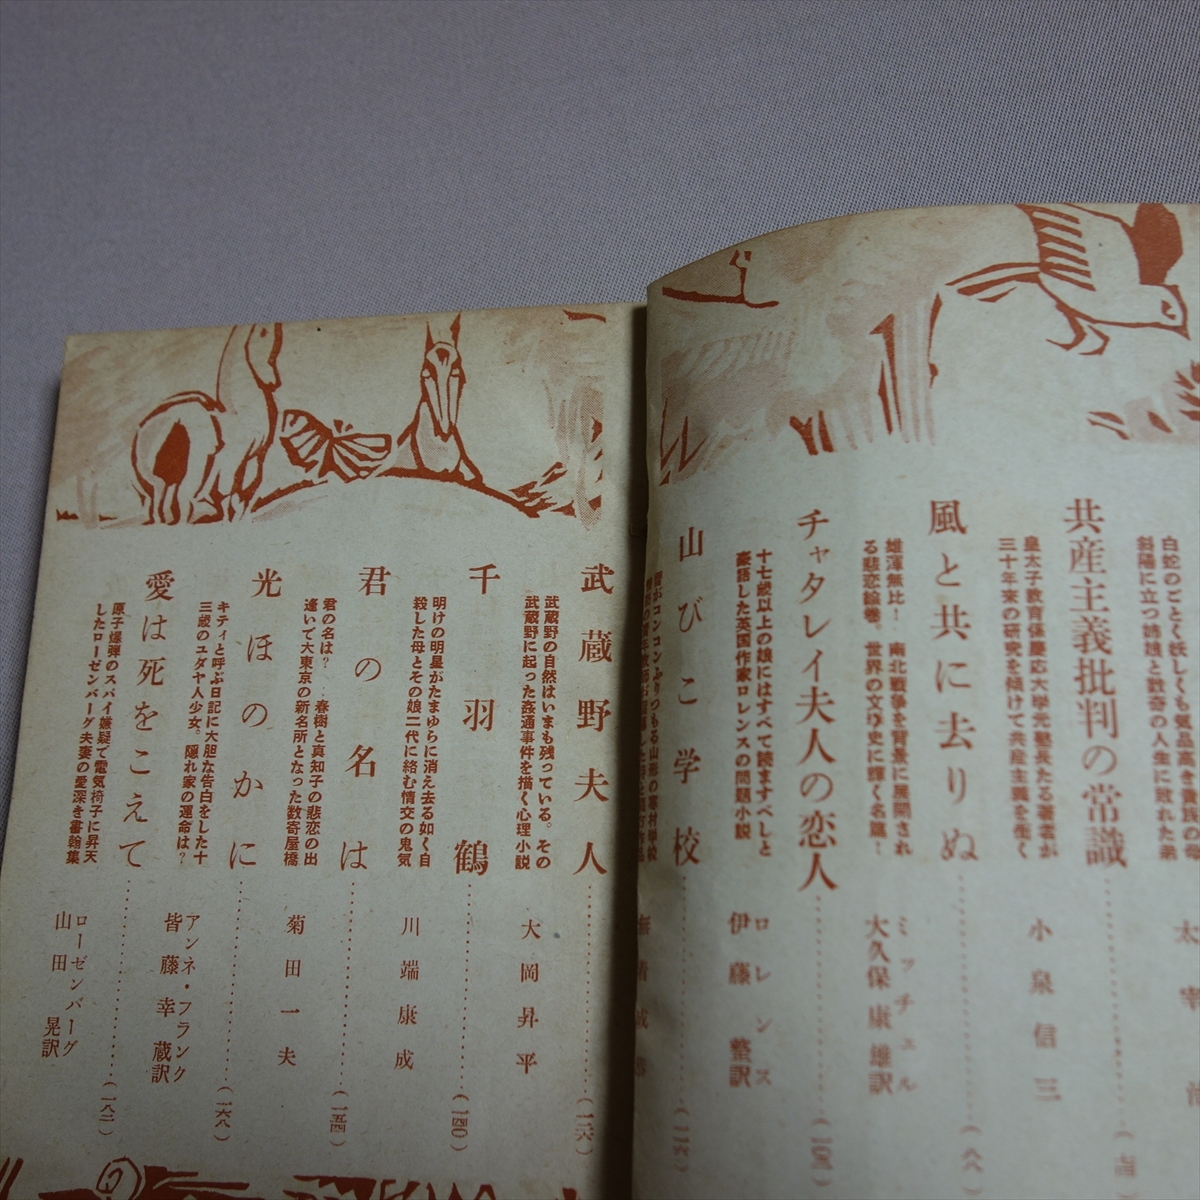 白蛇のごとく妖しくも気品高き貴族の母
斜陽に立つ姉娘と数奇の人生に敗れた弟
太宰
共産主義批判の常識
皇太子教育係慶応大学元塾長たる著者が
三十年来の研究を傾けて共産主義を衝く
小泉信三
風と共に去りぬ
雄渾無比！ 南北戦争を背景に展開され
る悲恋絵巻、世界の文学史に輝く名篇！
ミッチェル
大久保康雄訳
(八八)
チャタレイ夫人の恋人
十七歳以上の娘にはすべて読ますべしと
豪語した英国作家ロレンスの問題小説
ロレンス
伊藤整訳
山びこ学校
雪がコンコンふりつもる山形の寒村学校
無着成恭
(一一六)
武蔵野夫人
武蔵野の自然はいまも残っている。その
武蔵野に起った姦通事件を描く心理小説
大岡昇平
(一二六)
千羽鶴
明けの明星がたまゆらに消え去る如く自
殺した母とその娘二代に絡む情交の鬼気
川端康成
(一四〇)
君の名は
君の名は？ 春樹と真知子の悲恋の出
逢いで大東京の新名所となった数寄屋橋
菊田一夫
(一五四)
光ほのかに
キティと呼ぶ日記に大胆な告白をした十
三歳のユダヤ人少女。隠れ家の運命は？
アンネ・フランク
皆藤幸蔵訳
(一六八)
愛は死をこえて
原子爆弾のスパイ嫌疑で電気椅子に昇天
したローゼンバーグ夫妻の愛深き書翰集
ローゼンバーグ
山田晃訳
(一八二)